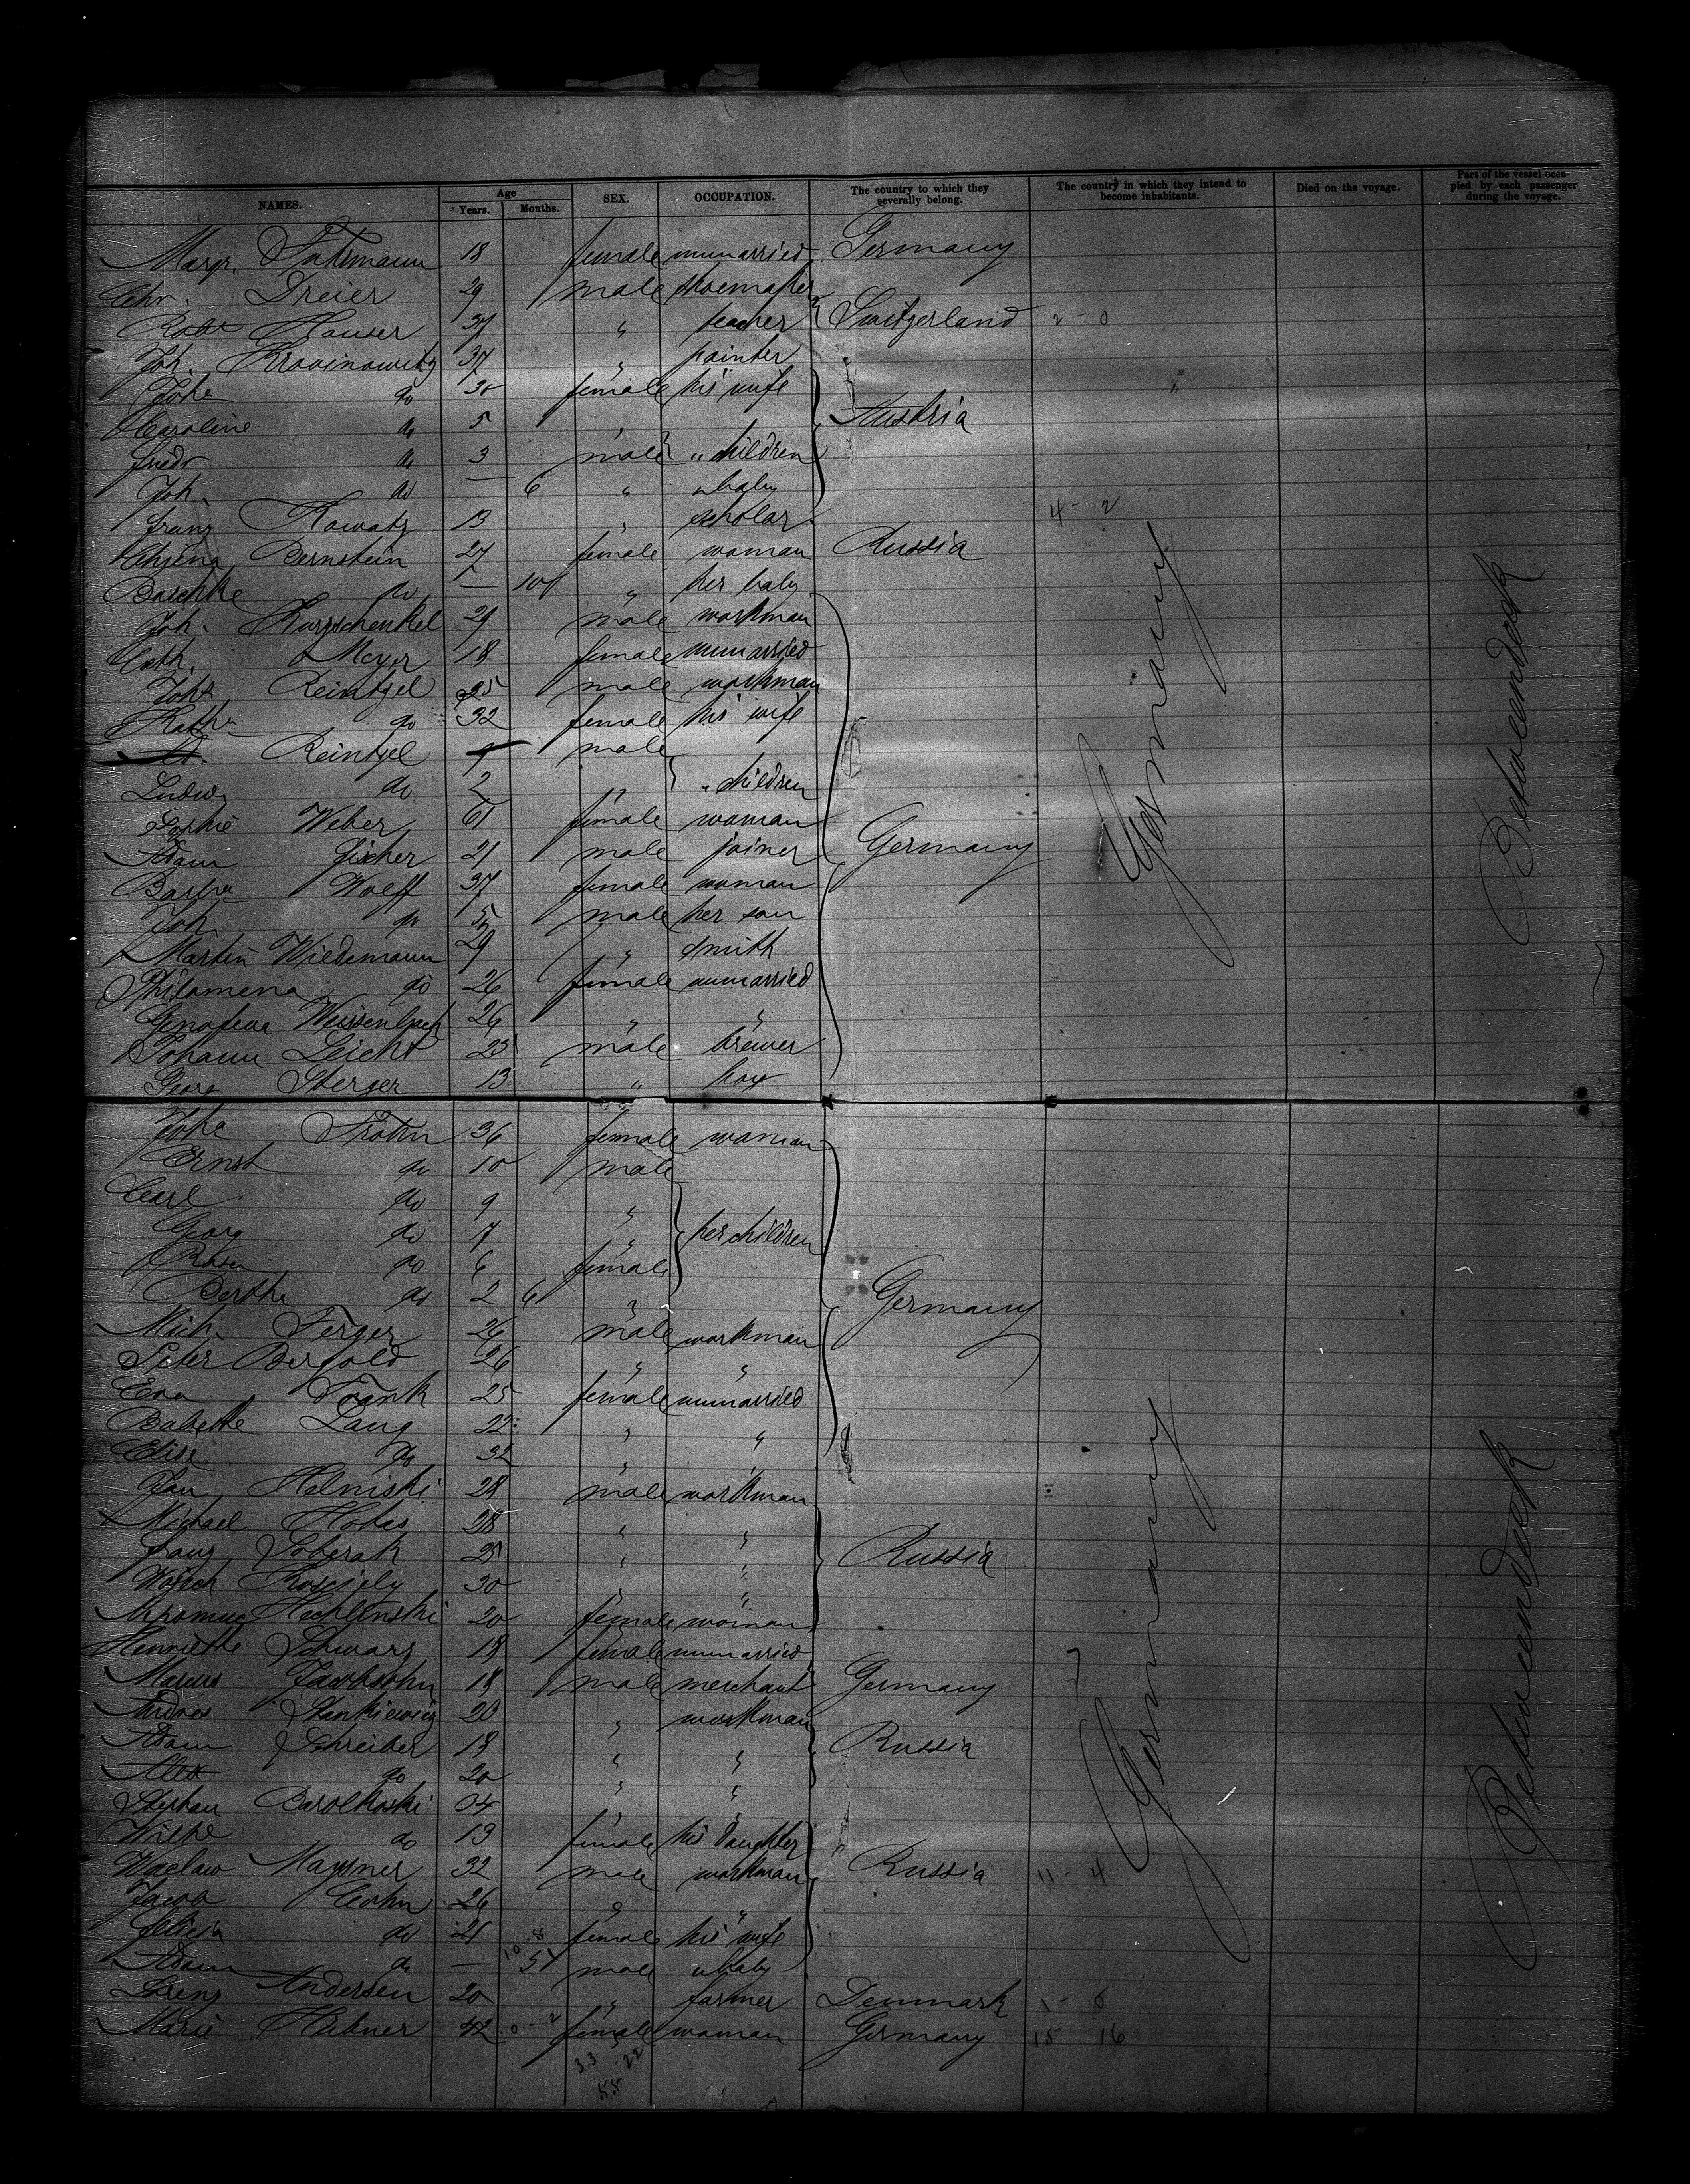 NAMES. Age Years. Months. SEX. OCCUPATION. The country to which they severally belong. The country in which they intend to become inhabitants. Died on the voyage. Part of the vessel occupied by each passenger during the voyage.
Margr. 18 female unmarried Germany
Chr. Dreier 29 male shoemaker
Robt Hauser 37 " teacher Switzerland 2 - 0
Joh. 37 " painter
Joha do 30 female his wife
Caroline do 5 Austria
Friedr do 3 male " children
Joh. do — 6 " " baby
Franz Kowatz 13 " scholar 4 - 2
Bernstein 27 female woman Russia
Baschke do — 10 " her baby
Joh. Kurzschenkel 29 male workman
Cath. Meyer 18 female unmarried
Joh. Reintzel 25 male workman
Kath. do 32 female his wife
Reintzel male
Ludw do 2 " " children
Sophie Weber 61 female woman
Adam Fischer 21 male joiner Germany
Barba Wolff 37 female woman
Joh do 5 male her son
Martin Wiedemann 29 " smith
Philomena do 26 female unmarried
Genofeva Weissenbach 26 " "
Johann Leicht 23 male brewer
Georg 13 " boy
Germany
Betweendeck
Joha 36 female woman
Ernst do 10 male
Carl do 9 "
Georg do 7 " her children
Rosa do 6 female
Bertha do 2 6 " Germany
Mich. Ferger 26 male workman
Peter Bergold 26 " "
Eva Frank 25 female unmarried
Babette Lang 22 " "
Elise do 32 "
Jan 28 male workman
Michael 28 " "
Franz Soberak 25 " " Russia
30 " "
20 female woman
Henriette Schwarz 18 female unmarried
Marcus Jacobsohn 18 male merchant Germany
Andres Stankiewicz 20 " workman
Adam Schreiber 18 " " Russia
Alex do 20 " "
Stephan 04 " "
do 13 female his daughter
Waclaw 32 male workman Russia 11 - 4
Jacob Cohn 26 " "
Felicia do 21 female his wife
Adam do — male " baby
Lorenz Andersen 20 " farmer Denmark
Marie Hübner 42 female woman Germany 15 16
33 22
55
Germany
Betweendeck